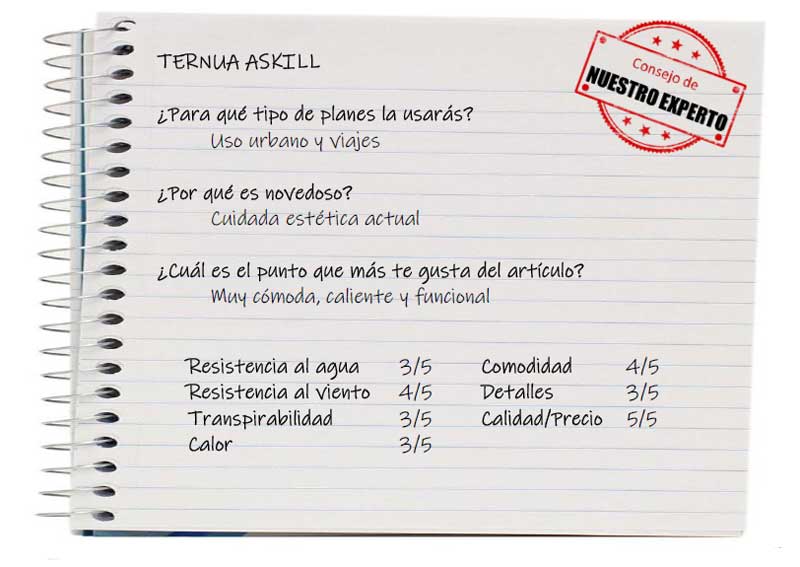 TERNUA ASKILL
Consejo de
NUESTRO EXPERTO
¿Para qué tipo de planes la usarás?
Uso urbano y viajes
¿Por qué es novedoso?
Cuidada estética actual
¿Cuál es el punto que más te gusta del artículo?
Muy cómoda, caliente y funcional
Resistencia al agua 3/5 Comodidad 4/5
Resistencia al viento 4/5 Detalles 3/5
Transpirabilidad 3/5 Calidad/Precio 5/5
Calor 3/5